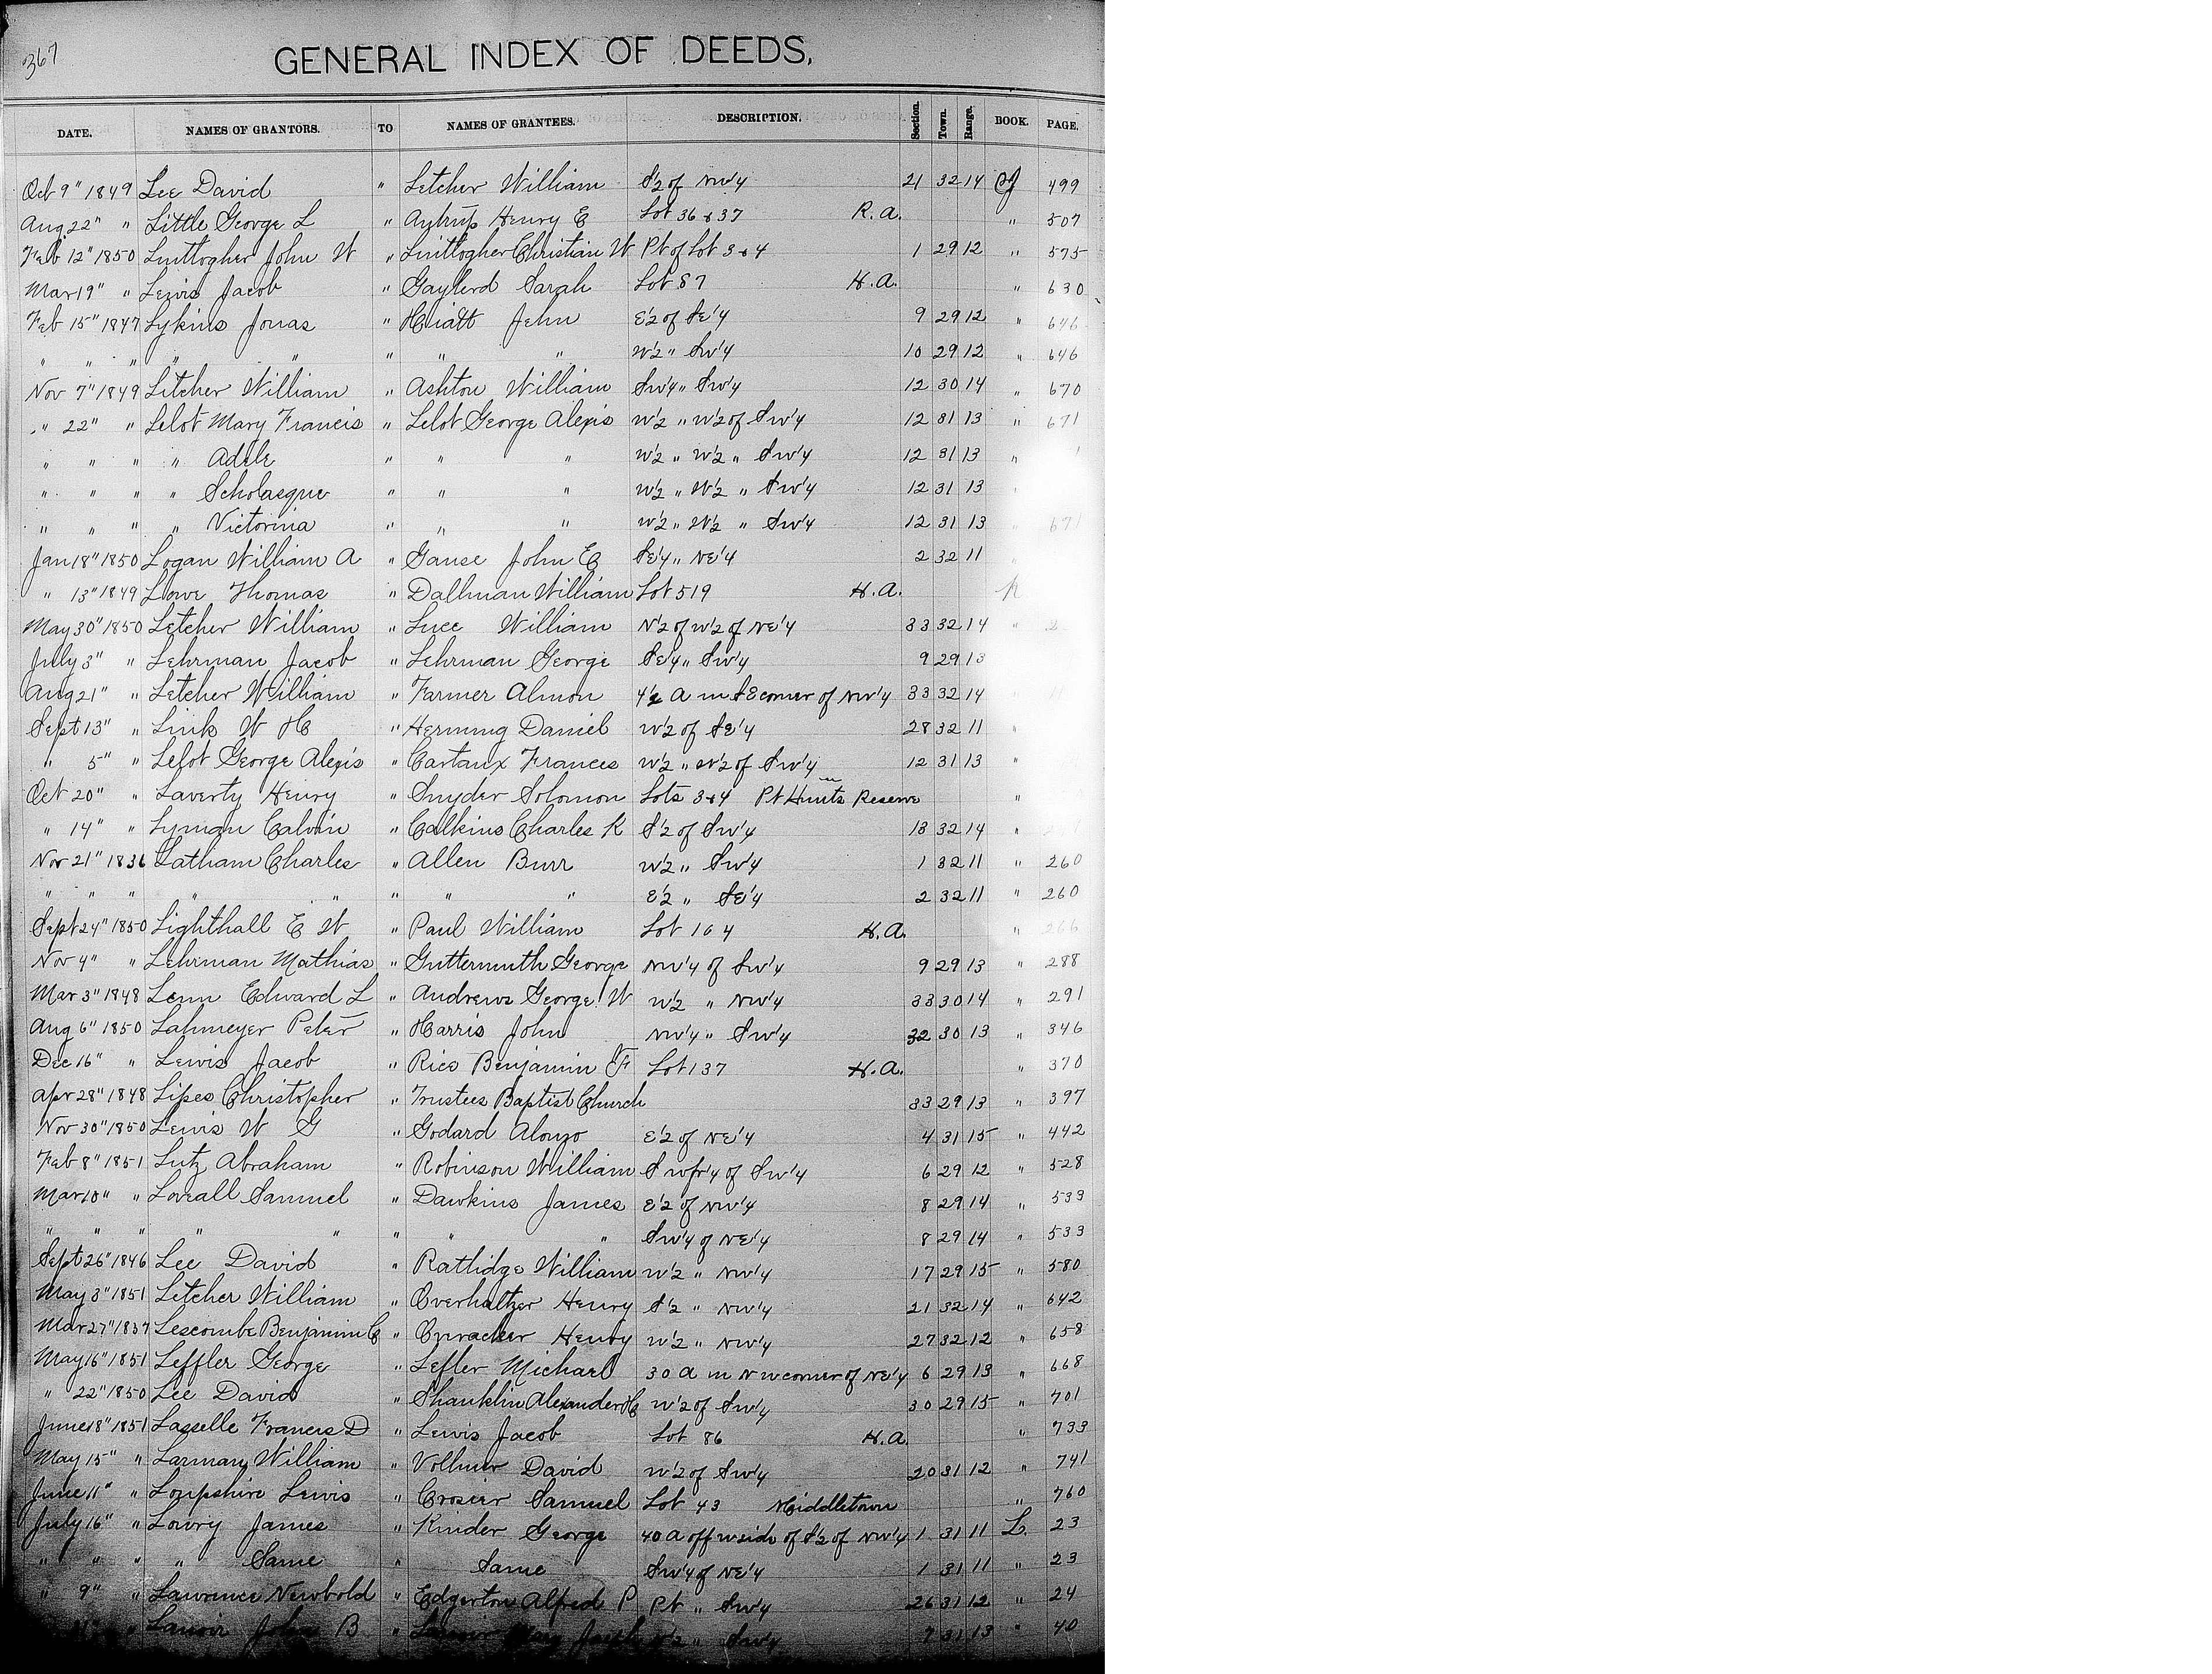 367
GENERAL INDEX OF DEEDS.
DATE. NAMES OF GRANTORS. TO NAMES OF GRANTEES. DESCRIPTION. Section. Town. Range. BOOK. PAGE.
Oct 9" 1849 Lee David " Letcher William S½ of NW¼ 21 32 14 499
Aug 22" " Little George L " Aytrup Henry E Lot 36 & 37 R.A. " 507
Feb 12" 1850 Linttogher John W " Linttogher Christian W Pt of Lot 3&4 1 29 12 " 575
Mar 19" " Lewis Jacob " Gaylord Sarah Lot 87 H.A. " 630
Feb 15" 1847 Lykins Jonas " Hiatt John E½ of SE¼ 9 29 12 " 646
" " " " " " " " W½ " SW¼ 10 29 12 " 646
Nov 7" 1849 Litcher William " Ashton William SW¼ " SW¼ 12 30 14 " 670
" 22" " Lelot Mary Francis " Lelot George Alexis W½ " W½ of SW¼ 12 31 13 " 671
" " " " Adele " " " W½ " W½ " SW¼ 12 31 13 "
" " " " Scholasque " " " W½ " W½ " SW¼ 12 31 13
" " " " Victorina " " " W½ " W½ " SW¼ 12 31 13 " 671
Jan 18" 1850 Logan William A " Gause John E SE¼ " NE¼ 2 32 11
" 13" 1849 Lowe Thomas " Dallman William Lot 519 H.A.
May 30" 1850 Letcher William " Luce William N½ of W½ of NE¼ 33 32 14 "
July 3" " Lehrman Jacob " Lehrman George SE¼ " SW¼ 9 29 13
Aug 21" " Letcher William " Farmer Almon 4½ A in SE corner of NW¼ 33 32 14
Sept 13" " Link W H " Herming Daniel W½ of SE¼ 28 32 11 "
" 5" " Lelot George Alexis " Cartaux Frances W½ " W½ of SW¼ 12 31 13 "
Oct 20" " Laverty Henry " Snyder Solomon Lots 3&4 Pt Hunts Reserve "
" 14" " Lyman Calvin " Calkins Charles K S½ of SW¼ 13 32 14 "
Nov 21" 1836 Latham Charles " Allen Burr W½ " SW¼ 1 32 11 " 260
" " " " " " " " E½ " SE¼ 2 32 11 " 260
Sept 24" 1850 Lighthall E W " Paul William Lot 164 H.A. " 266
Nov 4" " Lehrman Mathias " Guttermuth George NW¼ of SW¼ 9 29 13 " 288
Mar 3" 1848 Lenn Edward L " Andrews George W W½ " NW¼ 33 30 14 " 291
Aug 6" 1850 Lahmeyer Peter " Harris John NW¼ " SW¼ 32 30 13 " 346
Dec 16" " Lewis Jacob " Rice Benjamin F Lot 137 H.A. " 370
Apr 28" 1848 Lipes Christopher " Trustees Baptist Church 33 29 13 " 397
Nov 30" 1850 Lewis W G " Godard Alonzo E½ of NE¼ 4 31 15 " 442
Feb 8" 1851 Lutz Abraham " Robinson William S W fr¼ of SW¼ 6 29 12 " 528
Mar 10" " Loveall Samuel " Dawkins James E½ of NW¼ 8 29 14 " 533
" " " " " " " " SW¼ of NE¼ 8 29 14 " 533
Sept 26" 1846 Lee David " Ratlidge William W½ " NW¼ 17 29 15 " 580
May 3" 1851 Letcher William " Overhaltzer Henry S½ " NW¼ 21 32 14 " 642
Mar 27" 1837 Lescombe Benjamin C " Cnracher Henry W½ " NW¼ 27 32 12 " 658
May 16" 1851 Leffler George " Lefler Michael 30 A in N W corner of NE¼ 6 29 13 " 668
" 22" 1850 Lee David " Shanklin Alexander H W½ of SW¼ 30 29 15 " 701
June 18" 1851 Lasselle Francis D " Lewis Jacob Lot 86 H.A. " 733
May 15" " Larman William " Vollmer David W½ of SW¼ 20 31 12 " 741
June 11" " Loupshire Lewis " Crosier Samuel Lot 43 Middletown " 760
July 16" " Lowry James " Kinder George 40 A off W side of S½ of NW¼ 1 31 11 L. 23
" " " " Same " Same SW¼ of NE¼ 1 31 11 " 23
" 9" " Lawrence Newbold " Edgerton Alfred P Pt " SW¼ 26 31 12 " 24
" Lanoir John B " SW¼ 7 31 13 " 40